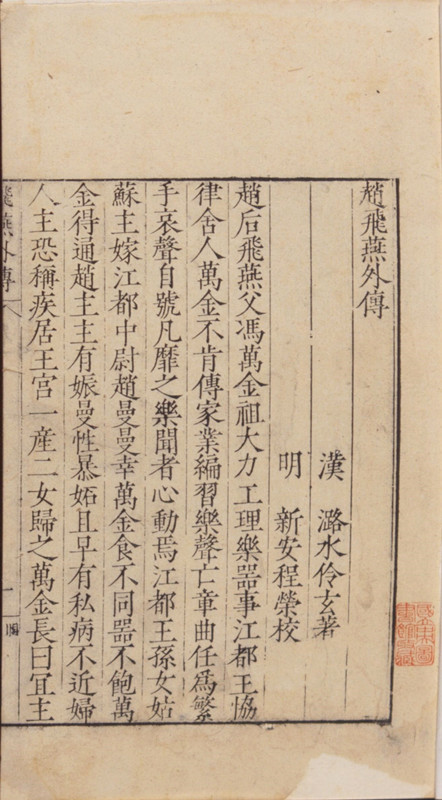 趙飛燕外傳
漢 潞水伶玄著
明 新安程榮校
趙后飛燕父馮萬金祖大力工理樂器事江都王恊
律舍人萬金不肯傳家業編習樂聲亡章曲任爲繁
手哀聲自號凡靡之樂聞者心動焉江都王孫女姑
蘇主嫁江都中尉趙曼曼幸萬金食不同器不飽萬
金得通趙主主有娠曼性暴妬且早有私病不近婦
人主恐稱疾居王宮一產二女歸之萬金長曰宜主
飛燕外傳 一